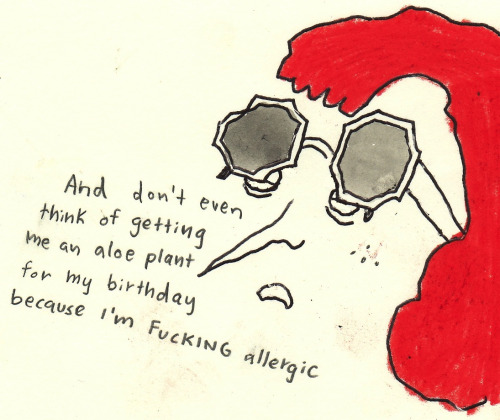 And don't even
think of getting
me an aloe plant
for my birthday
because I'm FUCKING allergic